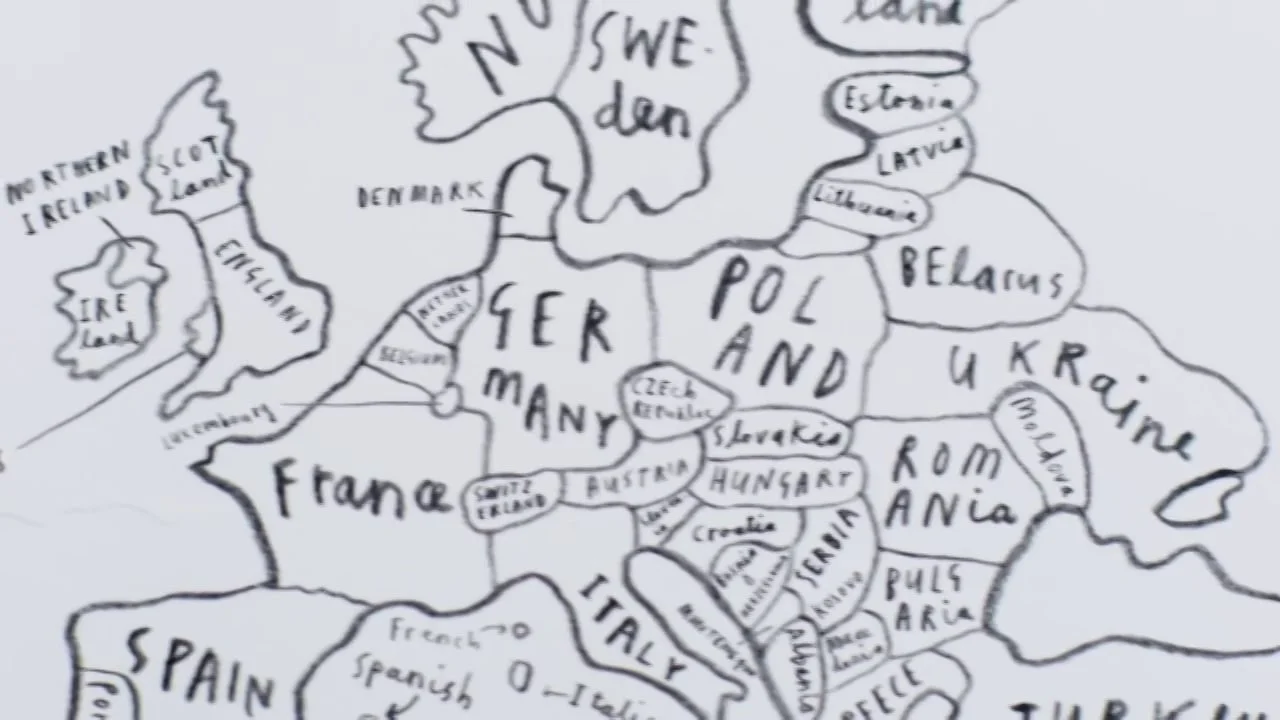 land
N
SWE-
den
Estonia
LATVIA
Lithuania
NORTHERN
IRELAND
SCOT
land
DENMARK
ENGLAND
IRE
land
NETHER
LANDS
BELGIUM
Luxembourg
GER
MANY
POL
AND
BElarus
UKRaine
CZEch
REPublic
Slovakia
ROM
ANia
Moldova
France
SWITZ
ERLAND
AUSTRIA
HUNGARY
Croatia
SERBIA
KOSOVO
BULG
ARia
ITALY
MONTENEGRO
Albania
SPAIN
Por
French
Spanish